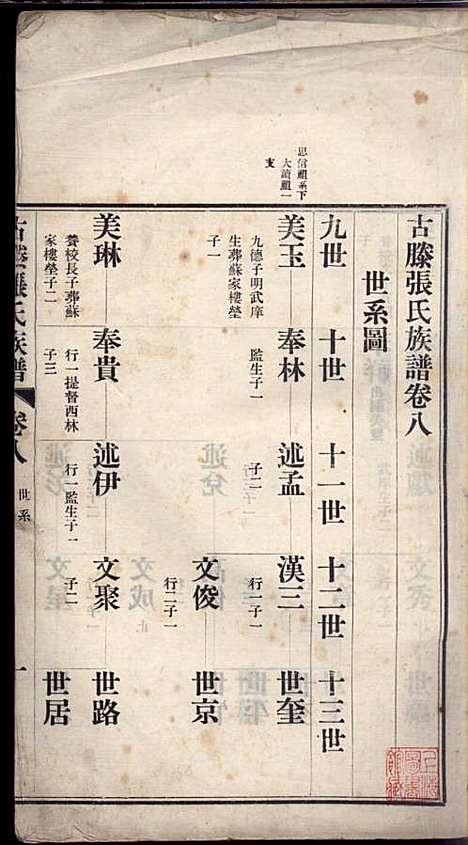 思信顯系下
大讀顯一
支
古滕張氏族譜卷八
世系圖
九世 十世 十一世 十二世 十三世
美玉 奉林 述孟 漢三 世奎
九德子明武庠 監生子一 子二 行一子一
生葬蘇家樓塋
子一
文俊 世京
行二子一
美琳 奉貴 述伊 文聚 世路
養校長子葬蘇 行一提督西林 行一監生子一 子二
家樓塋子二 子三
世居
古滕張氏族譜 卷八 世系 一